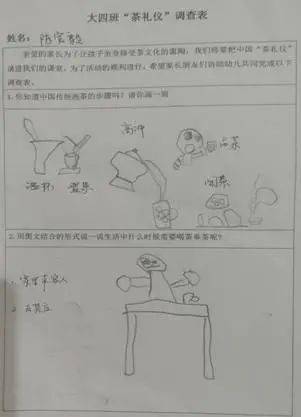 大四班“茶礼仪”调查表
姓名：
亲爱的家长为了让孩子更全接受茶文化的熏陶，我们将要把中国“茶礼仪”
请进我们的课堂，为了活动的顺利进行，希望家长朋友们协助幼儿共同完成以下
调查表。
1.你知道中国传统泡茶的步骤吗？请你画一画
高冲
品茶
温杯
置茶
闻茶
2.用图文结合的形式说一说生活中什么时候需要喝茶奉茶呢？
1.家里来客人
2.